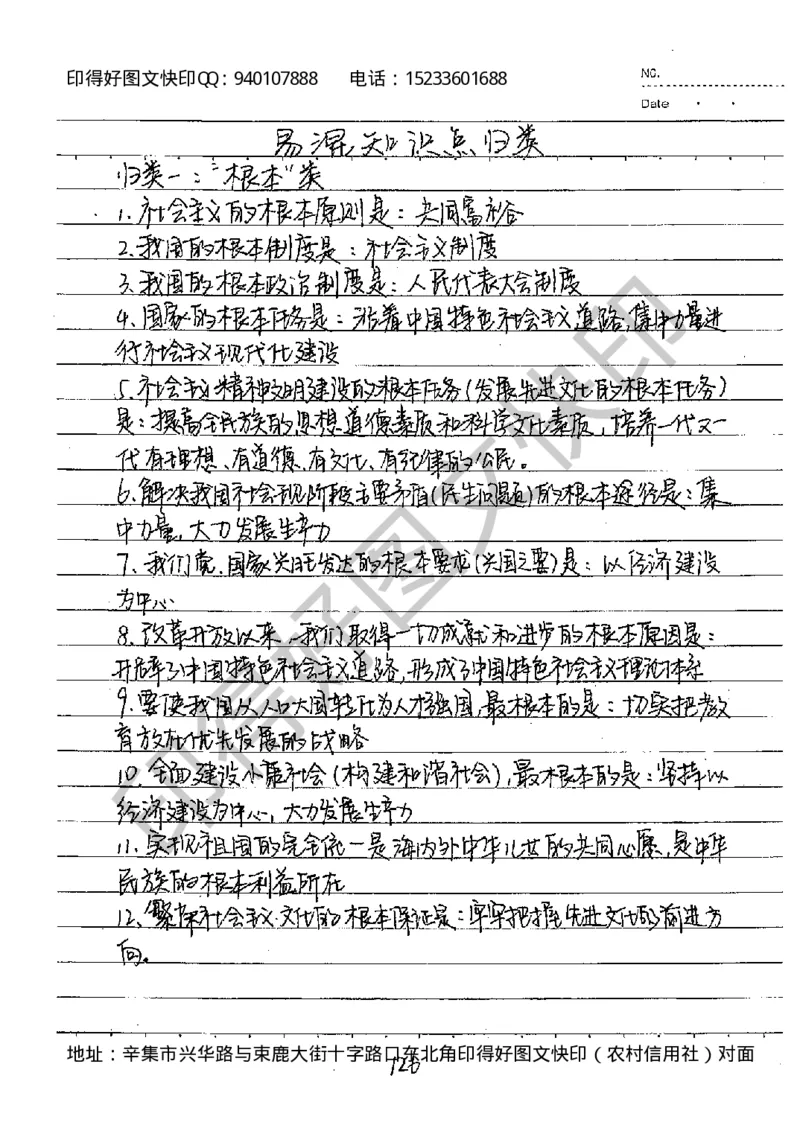 印得好图文快印QQ：940107888 电话：15233601688
NO.
Date
易混知识点归类
归类一："根本"类
1、社会主义的根本原则是：共同富裕
2、我国的根本制度是：社会主义制度
3、我国的根本政治制度是：人民代表大会制度
4、国家的根本任务是：沿着中国特色社会主义道路，集中力量进
行社会主义现代化建设
5、社会主义精神文明建设的根本任务（发展先进文化的根本任务）
是：提高全民族的思想道德素质和科学文化素质，培养一代又一
代有理想、有道德、有文化、有纪律的公民。
6、解决我国社会现阶段主要矛盾（民生问题）的根本途径是：集
中力量，大力发展生产力
7、我们党、国家兴旺发达的根本要求（兴国之要）是：以经济建设
为中心
8、改革开放以来，我们取得一切成就和进步的根本原因是：
开辟了中国特色社会主义道路，形成了中国特色社会主义理论体系
9、要使我国从人口大国转化为人才强国，最根本的是：切实把教
育放在优先发展的战略
10、全面建设小康社会（构建和谐社会），最根本的是：坚持以
经济建设为中心，大力发展生产力
11、实现祖国的完全统一是海内外中华儿女的共同心愿，是中华
民族的根本利益所在
12、繁荣社会主义文化的根本保证是：牢牢把握先进文化的前进方
向。
地址：辛集市兴华路与束鹿大街十字路口东北角印得好图文快印（农村信用社）对面
印得好图文快印